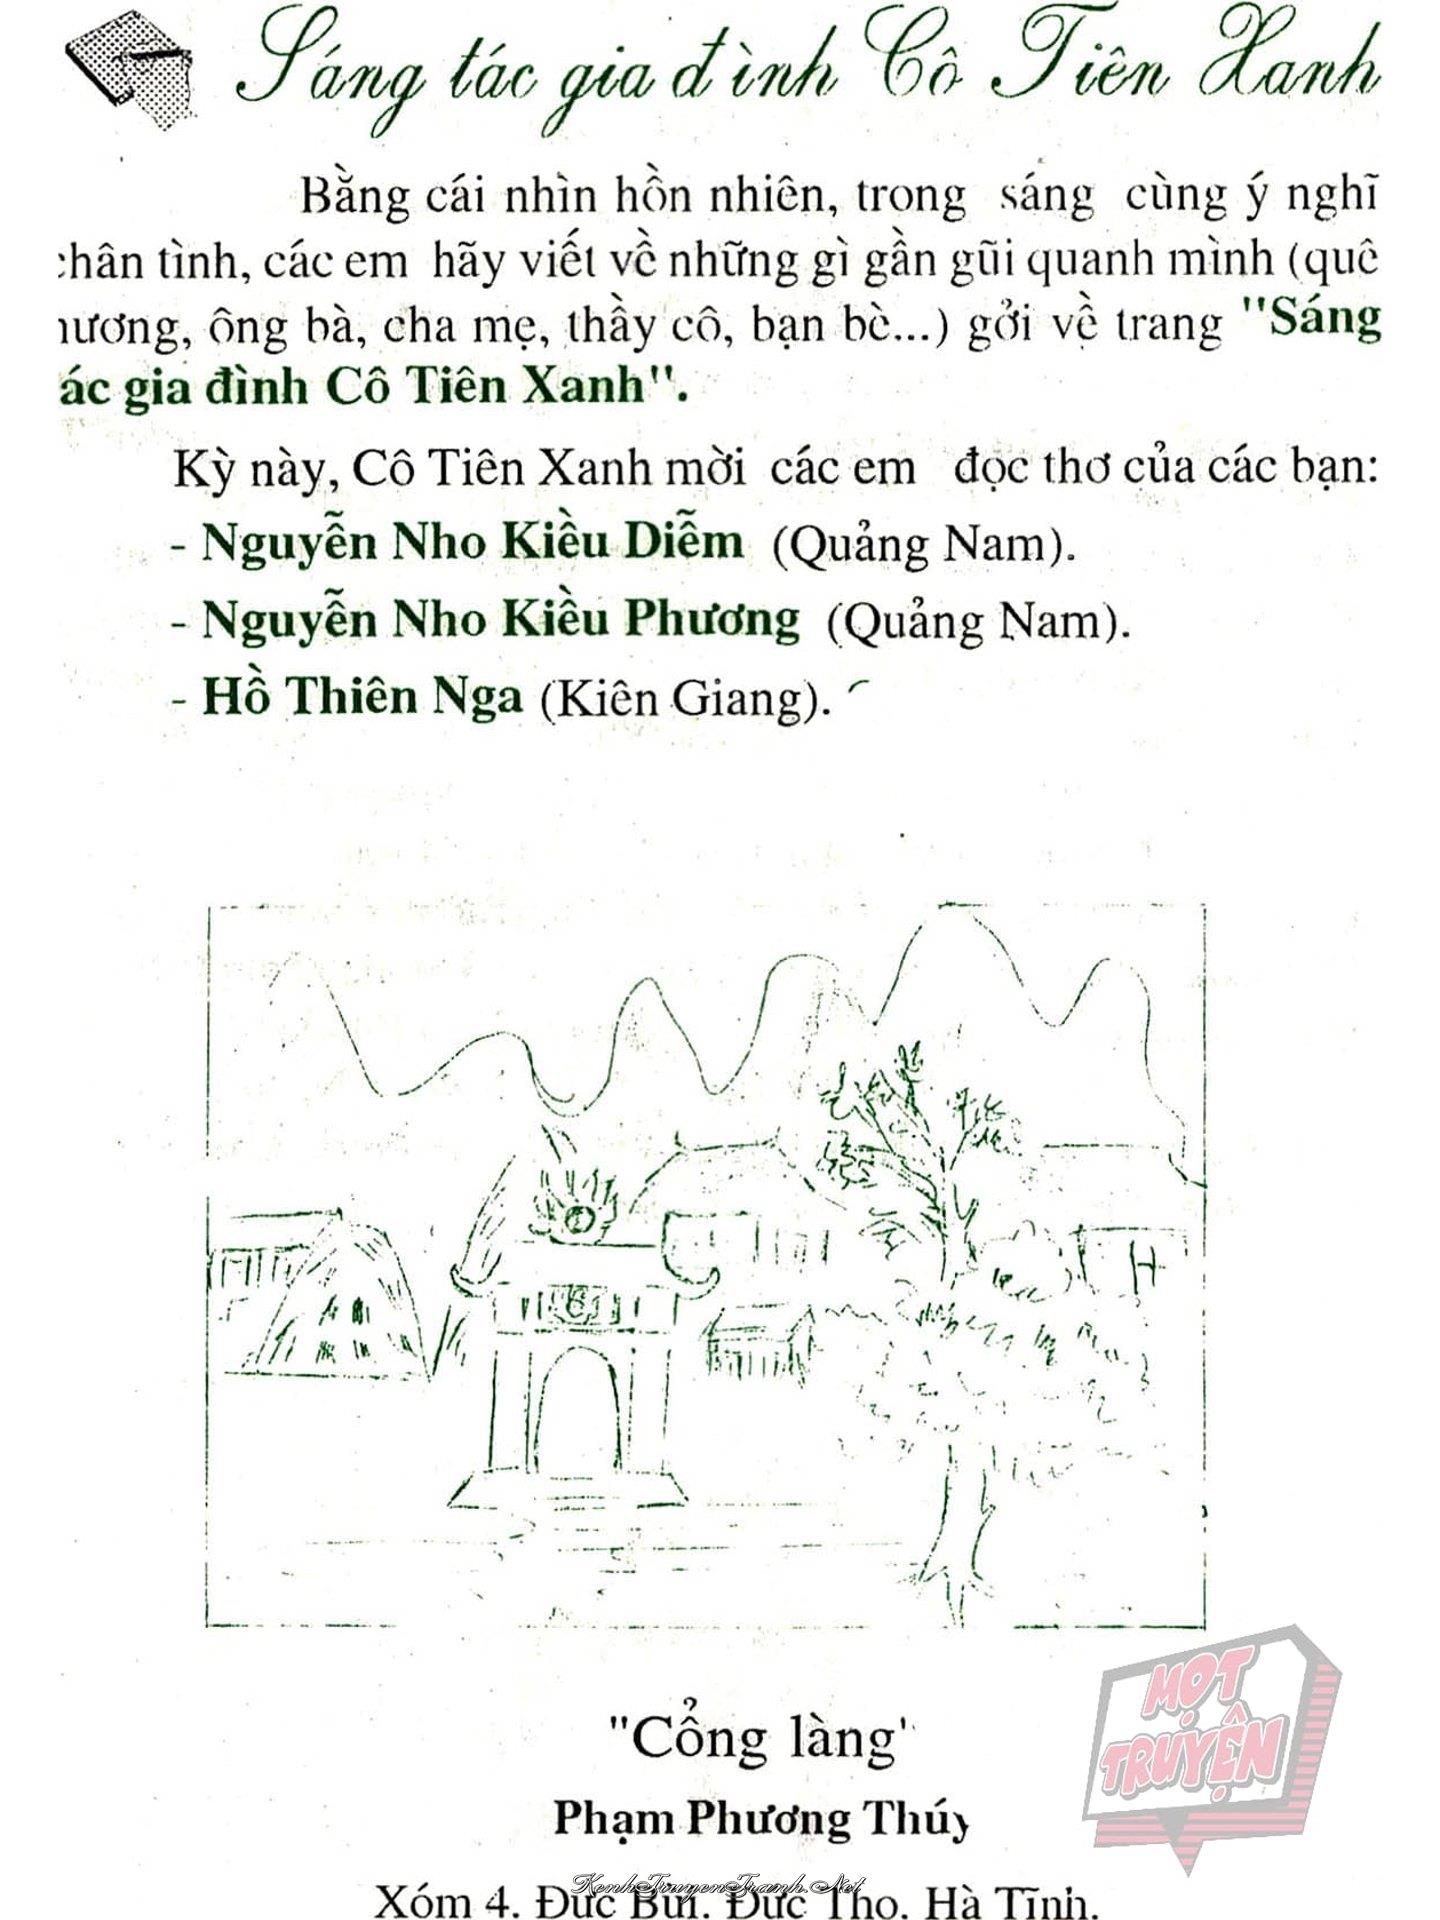 Sáng tác gia đình Cô Tiên Xanh
Bằng cái nhìn hồn nhiên, trong sáng cùng ý nghĩ
chân tình, các em hãy viết về những gì gần gũi quanh mình (quê
hương, ông bà, cha mẹ, thầy cô, bạn bè...) gởi về trang "Sáng
tác gia đình Cô Tiên Xanh".
Kỳ này, Cô Tiên Xanh mời các em đọc thơ của các bạn:
- Nguyễn Nho Kiều Diễm (Quảng Nam).
- Nguyễn Nho Kiều Phương (Quảng Nam).
- Hồ Thiên Nga (Kiên Giang).
"Cổng làng"
Phạm Phương Thúy
Xóm 4. Đức Bùi. Đức Thọ. Hà Tĩnh.
KenhTruyenTranh.Net
MỌT
TRUYỆN